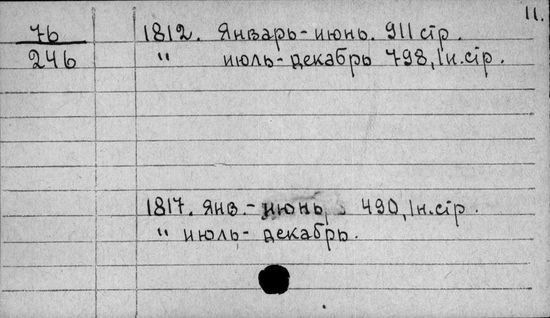 11.
76 1812. Январь-июнь. 911 стр.
246 " июль-декабрь 798, 1 н.стр.
1817. Янв.-июнь, 490, 1 н.стр.
" июль-декабрь.